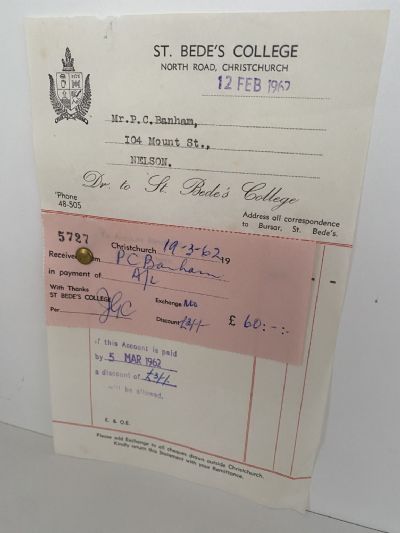 ST. BEDE'S COLLEGE
NORTH ROAD, CHRISTCHURCH
12 FEB 1962
Mr.P.C.Banham,
104 Mount St.,
NELSON.
Dr. to St. Bede's College
'Phone
48-505
Address all correspondence
to Bursar, St. Bede's.
5727
Christchurch 19-3-62 19
Received P C Banham
in payment of A/c
With Thanks
ST BEDE'S COLLEGE
Exchange
Per
Discount £3/-/-
£ 60:-:-
If this Account is paid
by 5 MAR 1962
a discount of £3/-/-
will be allowed.
E. & O.E.
Please add Exchange to all cheques drawn outside Christchurch.
Kindly return this Statement with your Remittance.